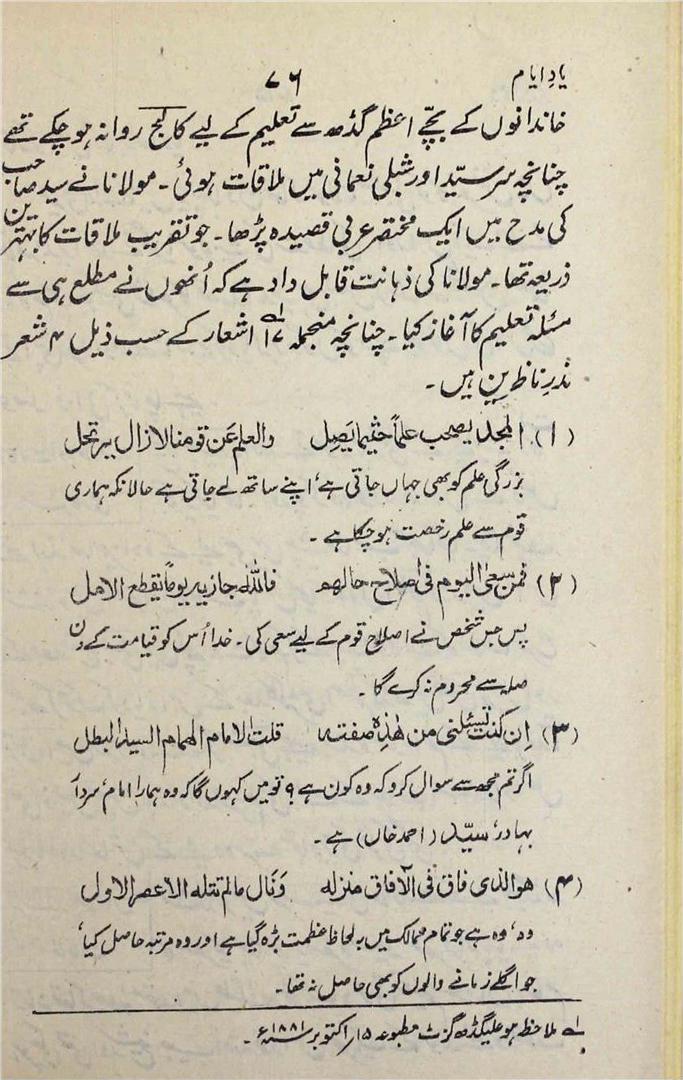 یادِ ایام
۷۶
خاندانوں کے بچّے اعظم گڈھ سے تعلیم کے لیے کالج روانہ ہو چکے تھے
چنانچہ سر سیّد اور شبلی نعمانی میں ملاقات ہوئی۔ مولانا نے سید صاحب
کی مدح میں ایک مختصر عربی قصیدہ پڑھا۔ جو تقریب ملاقات کا بہترین
ذریعہ تھا۔ مولانا کی ذہانت قابل داد ہے کہ اُنھوں نے مطلع ہی سے
مسئلہ تعلیم کا آغاز کیا۔ چنانچہ منجملہ ۱۷ اشعار کے حسب ذیل ۴ شعر
نذرِ ناظرین ہیں۔
(۱) المجد یصحب علماً حیثما یَصِل والعلم عَن قومنا لازال یرتحل
بزرگی علم کو بھی جہاں جاتی ہے، اپنے ساتھ لے جاتی ہے حالانکہ ہماری
قوم سے علم رخصت ہو چکا ہے۔
(۲) فمن سعیٰ الیوم فی اصلاح حالھم فاللّٰہ جازیہ یوماً یقطع الامل
پس جس شخص نے اصلاحِ قوم کے لیے سعی کی۔ خدا اُس کو قیامت کے دن
صلہ سے محروم نہ کرے گا۔
(۳) اِن کنت تسئلنی من ھٰذِہ صفتہ قلت الامام الھمام السید البطل
اگر تم مجھ سے سوال کرو کہ وہ کون ہے؟ تو میں کہوں گا کہ وہ ہمارا امام، سردار
بہادر، سیّد (احمد خاں) ہے۔
(۴) ھو الذی فاق فی الآفاق منزلہ وَنال مالم تنلہ الاعصر الاول
وہ، وہ ہے جو تمام ممالک میں بہ لحاظ عظمت بڑھ گیا ہے اور وہ مرتبہ حاصل کیا،
جو اگلے زمانے والوں کو بھی حاصل نہ تھا۔
لے ملاحظہ ہو علیگڈھ گزٹ مطبوعہ ۱۵/ اکتوبر سنہ ۱۸۸۱ء۔